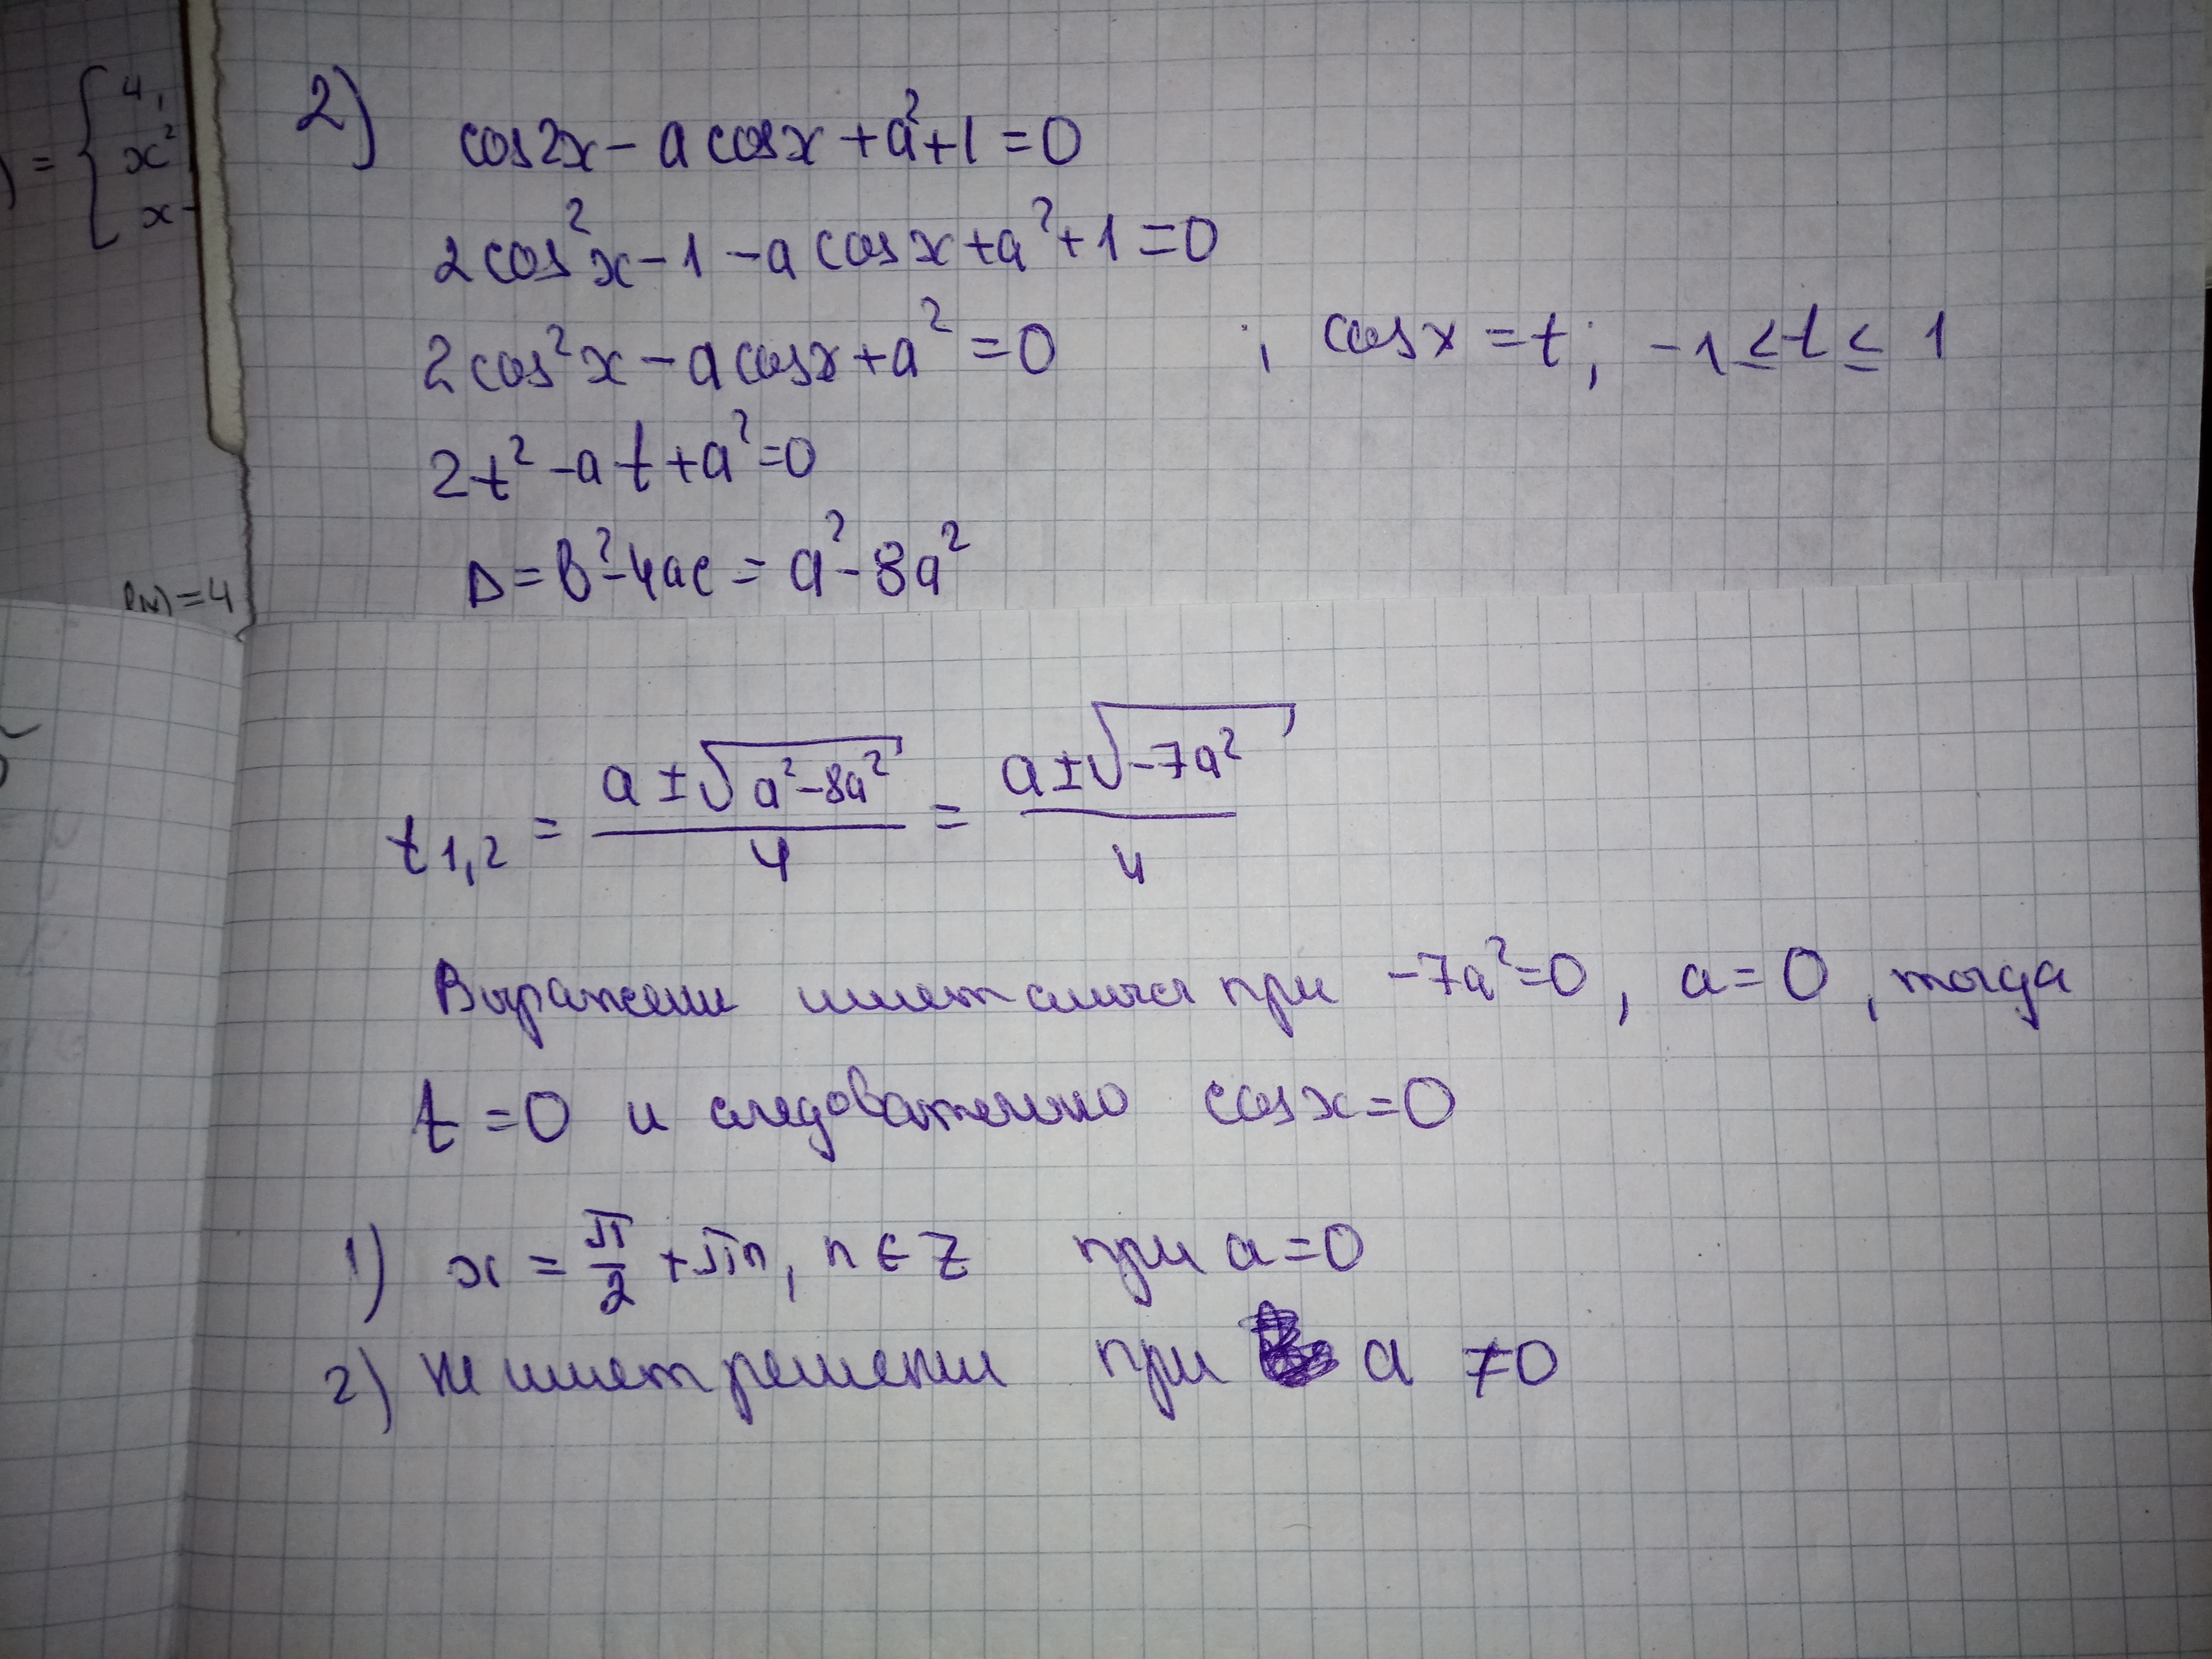 ) = { 4,
x²
x-
2) cos2x - a cosx + a² + 1 = 0
2cos²x - 1 - a cosx + a² + 1 = 0
2cos²x - a cosx + a² = 0 ; cosx = t; -1 ≤ t ≤ 1
2t² - at + a² = 0
D = b² - 4ac = a² - 8a²
= 4
t1,2 = (a ± √(a² - 8a²))/4 = (a ± √(-7a²))/4
Выражени имеет смысл при -7a² = 0, a = 0, тогда
t = 0 и следовательно cosx = 0
1) x = π/2 + πn, n ∈ Z при a = 0
2) не имеет решени при a ≠ 0